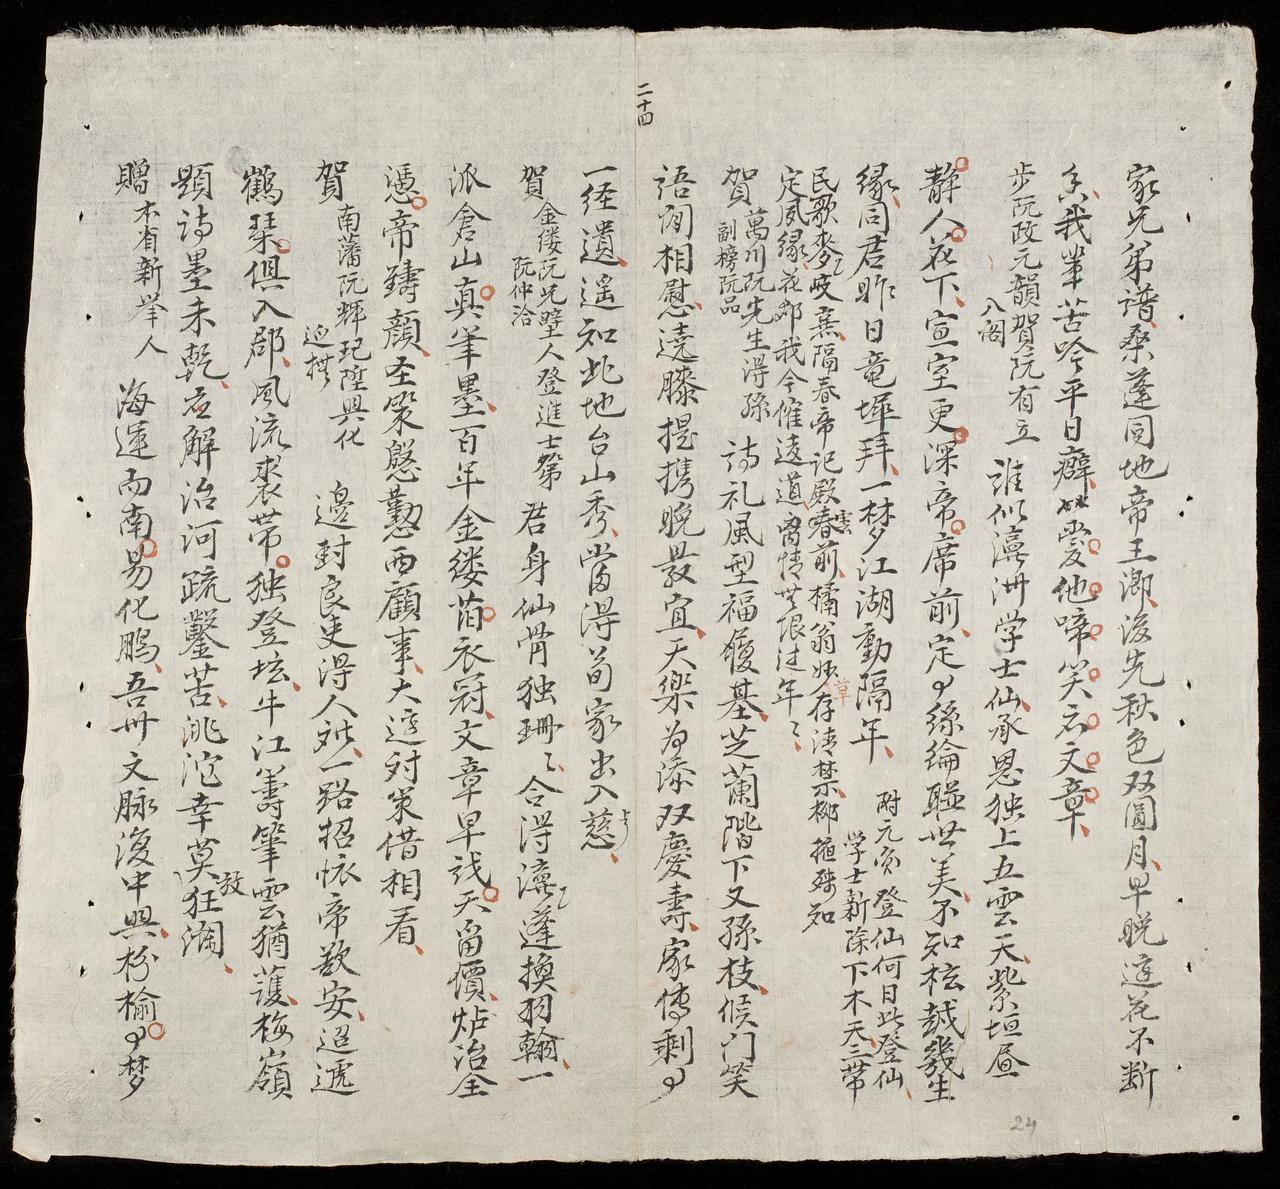 二十四
家兄弟譜桑蓬同地帝王鄉後先秋色双圓月早晚逰花不断
我軰苦吟平日癖愛他啼笑亦文章
步阮政元韻賀阮有立
入阁
誰似瀛洲学士仙承恩独上五雲天紫垣昼
静人花下宣室更深帝席前定絲綸聯世美不知柱越幾生
緣同君昨日竜墀拜一梦江湖動隔年
附元貟
学士新除下木天三带
登仙何日此登仙
民歌麥岐熏隔春帝記殿春前橘翁存清禁柳殊知
雲
草
定夙緣花邨我今催遠道离情世限过年〻
賀
萬川阮先生得孫
副榜阮品
詩礼風型福履基芝蘭階下又孫枝候门笑
語闻相慰遶膝提携晚最宜天樂為添双慶壽家傳剩
一経遺遥知此地台山秀當得荀家出入慈
賀
金缕阮兄璧人登進士第
阮仲洽
君身仙骨独珊〻合得瀛蓬換羽翰一
派倉山真笔墨百年金缕旧衣冠文章早戝天畱價炉冶全
憑帝鑄顏圣眾慇懃西顧事大廷対策借相看
賀
南藩阮輝玘陞興化
廵撫
邊封良吏得人难一路招怀帝欲安迢遞
鶴琹俱入郡風流裘带独登坛牛江筹筆雲猶護梅嶺
題诗墨未乾立解治河疏鑿苦洮沱幸莫狂瀾
放
贈
本省新举人
海運而南易化鵬吾州文脉復中興枌榆梦
24